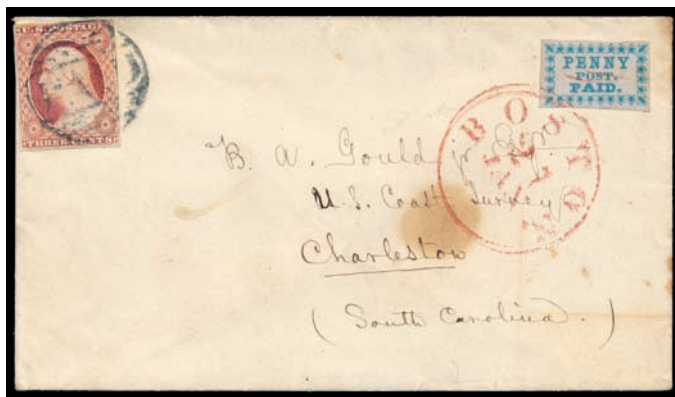 U.S. POSTAGE
THREE CENTS
PENNY
POST.
PAID.
BOSTON
B. A. Gould jr Esq.
U.S. Coast Survey
Charleston
(South Carolina.)